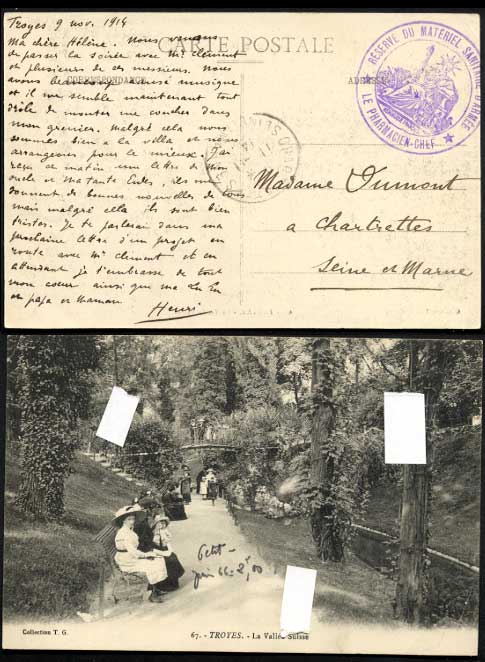 CARTE POSTALE
CORRESPONDANCE
ADRESSE
Troyes 9 nov. 1914
Ma chère Hélène. Nous venons
de passer la soirée avec Mr Clément
et plusieurs de ces messieurs. Nous
avons beaucoup musique
et il me semble maintenant tout
drôle de monter me coucher dans
mon grenier. Malgré cela nous
sommes bien à la villa et nous
arrangeons pour le mieux. J'ai
reçu ce matin une lettre de mon
oncle et ma tante ils me
donnent de bonnes nouvelles de tous
mais malgré cela ils sont bien
tristes. Je te parlerai dans ma
prochaine lettre d'un projet en
route avec Mr Clément et en
attendant je t'embrasse de tout
mon coeur ainsi que ma
et papa et maman.
Henri
RESERVE DU MATERIEL SANITAIRE D'ARMEE
LE PHARMACIEN-CHEF
Madame Dumont
a Chartrettes
Seine et Marne
Petit-
juin 66-2,00
Collection T. G.
67. - TROYES. - La Vallée Suisse